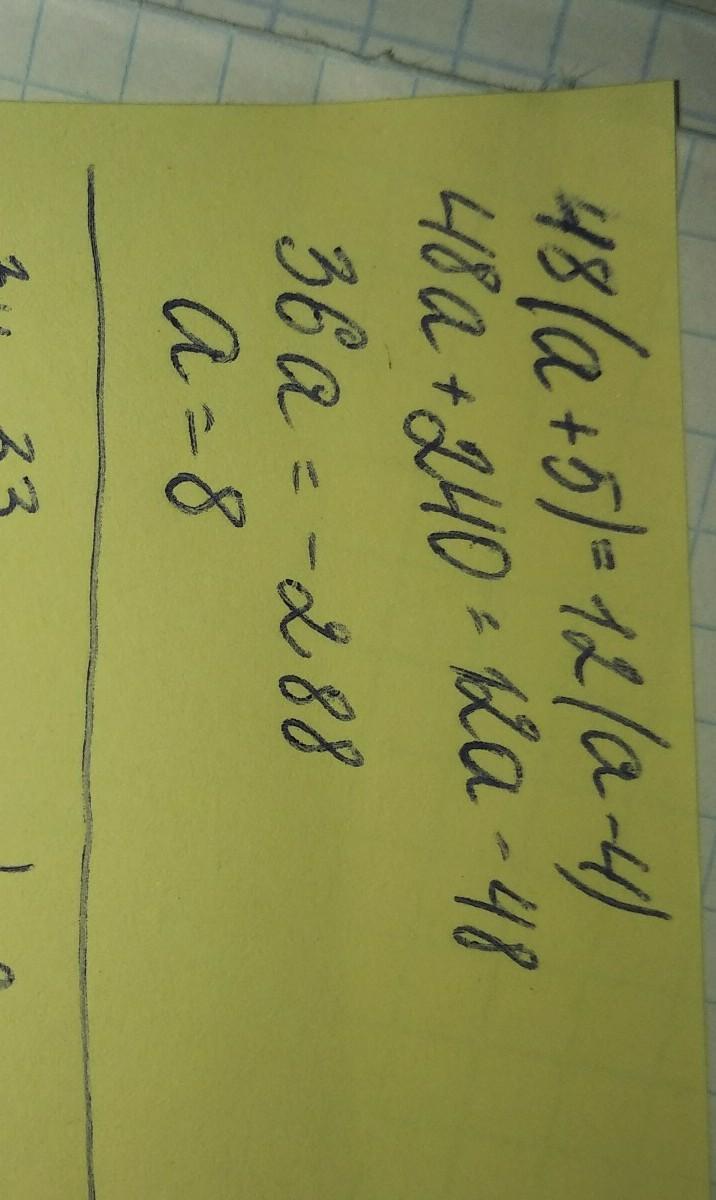 48(a+5)=12(a-4)
48a+240=12a-48
36a=-288
a=-8